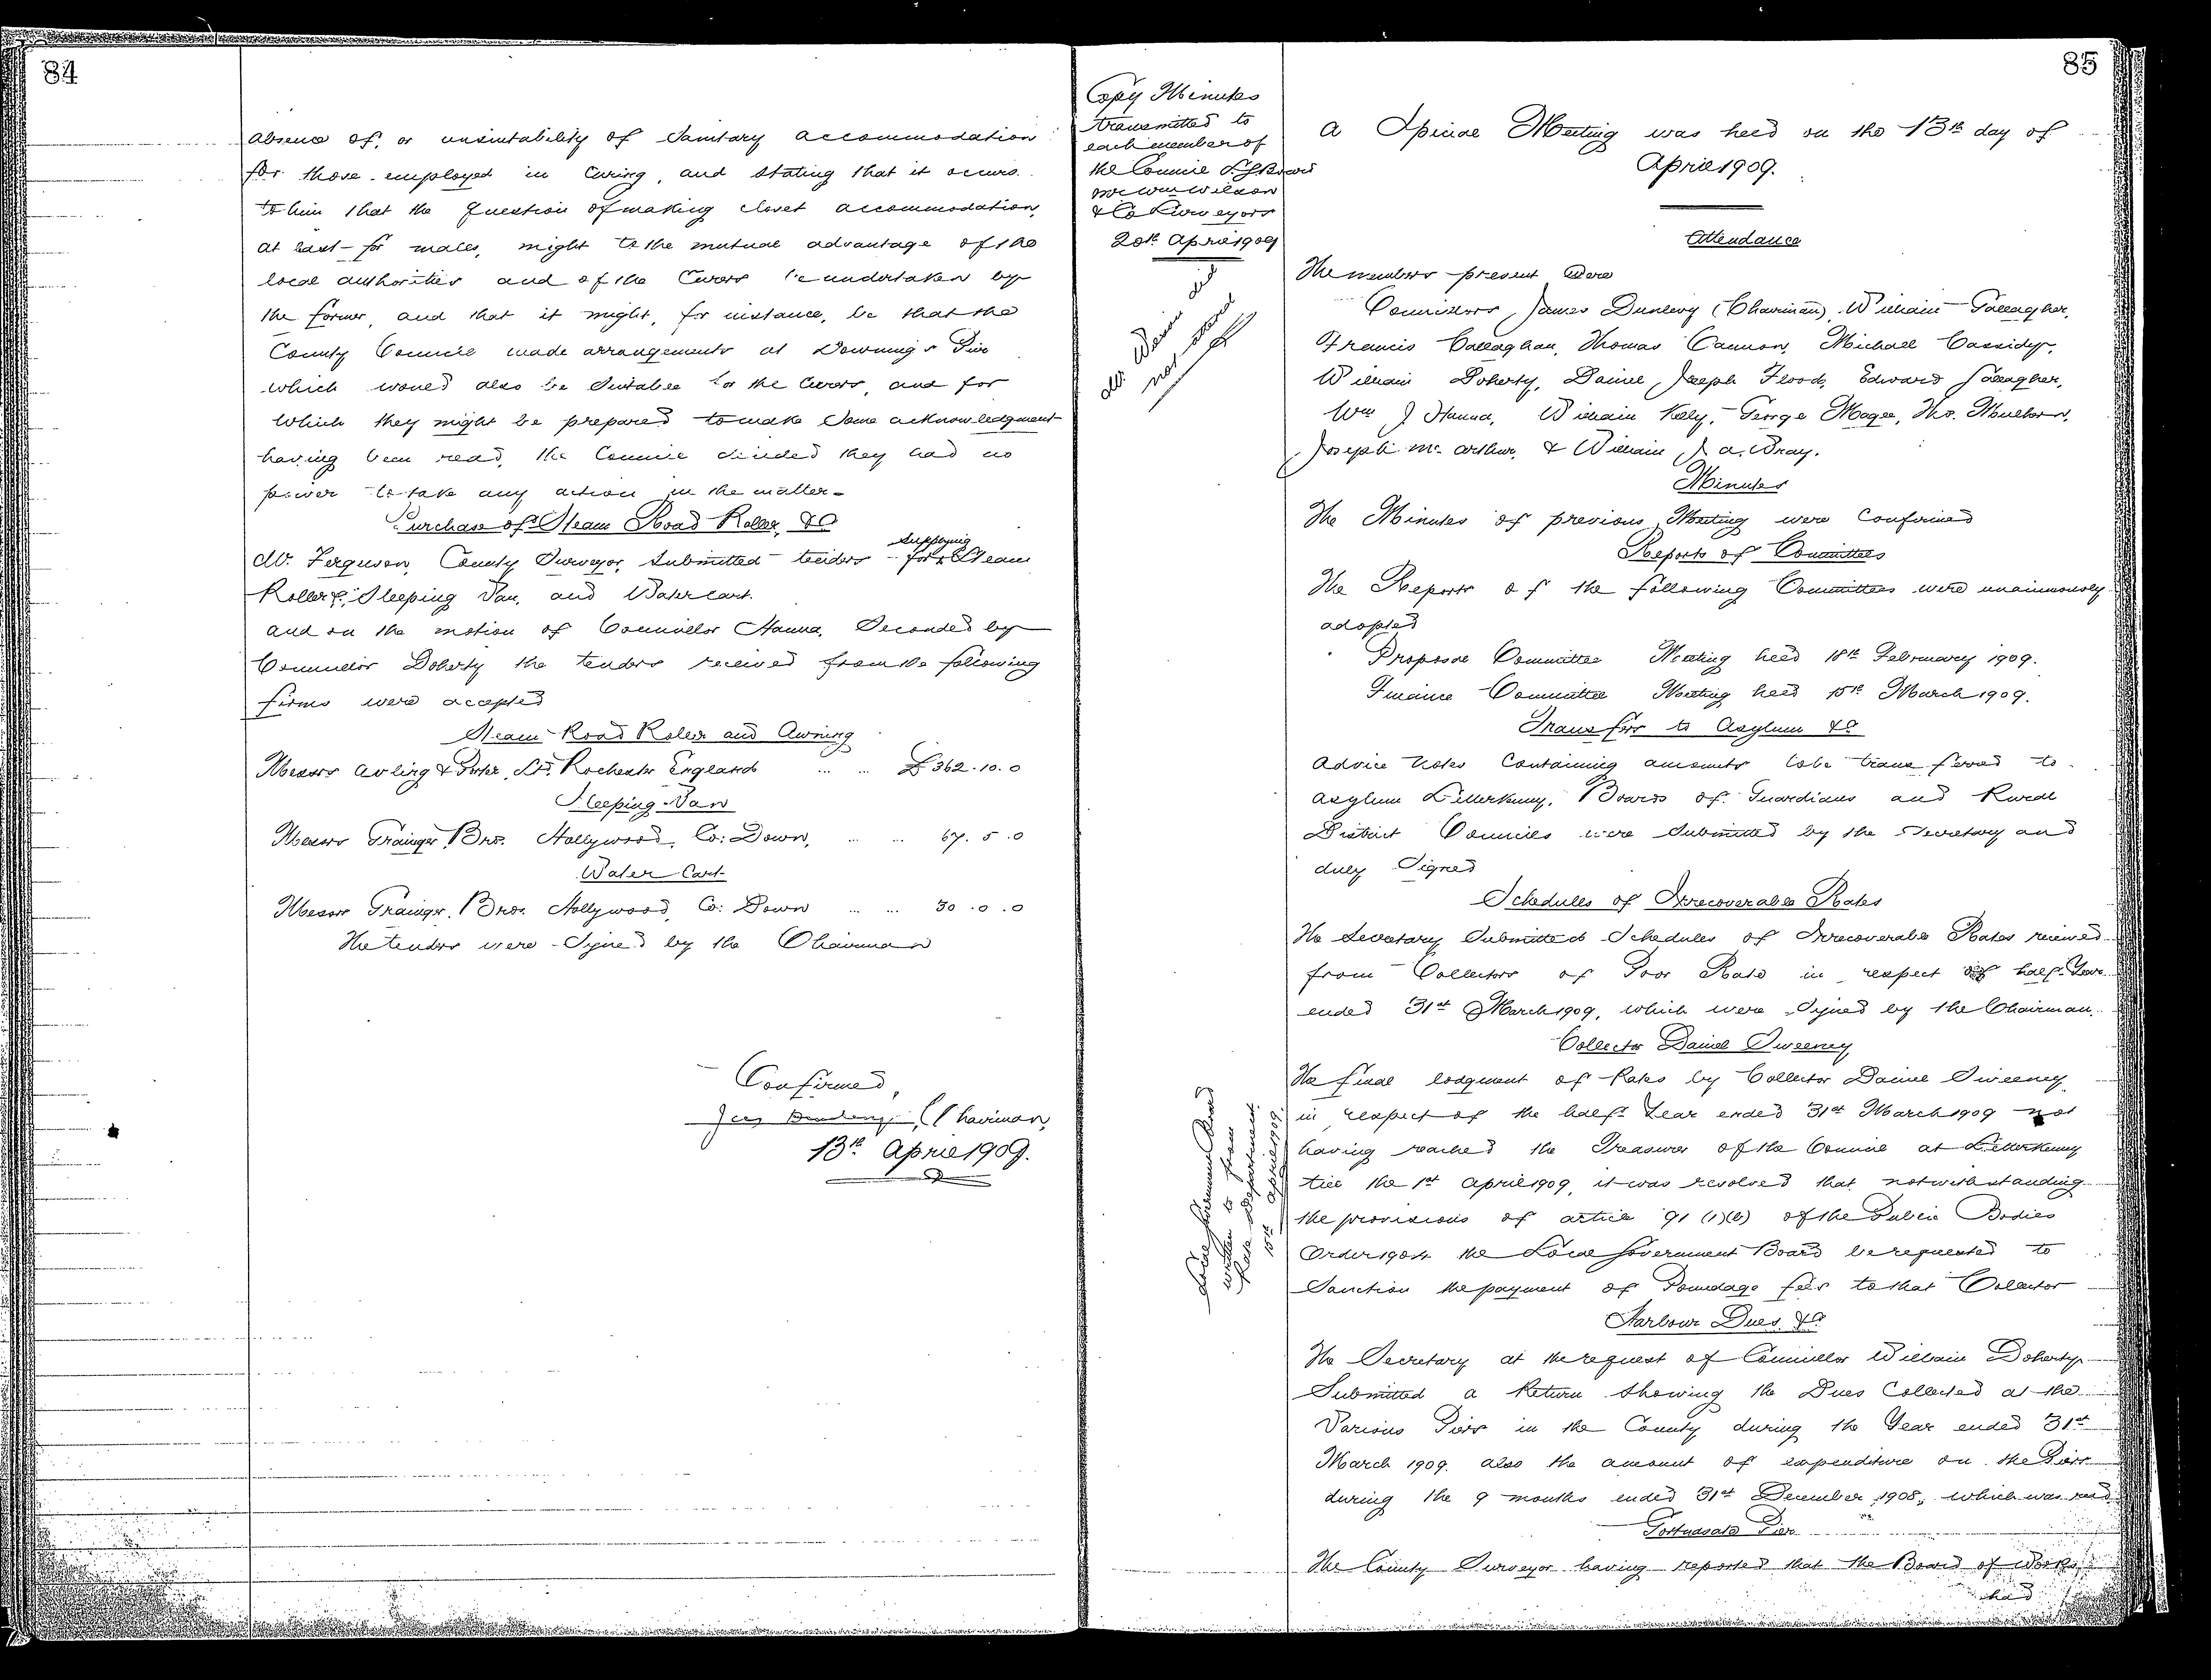 84
absence of, or unsuitability of Sanitary accommodation
for those employed in Curing, and stating that it occurs
to him that the question of making closet accommodation,
at least for males, might to the mutual advantage of the
local authorities and of the Curers be undertaken by
the former, and that it might, for instance, be that the
County Council made arrangements at Downings Pier
which would also be Suitable for the Curers, and for
which they might be prepared to make Some acknowledgment
having been read, the Council decided they had no
power to take any action in the matter.
Purchase of Steam Road Roller, &c
Mr. Ferguson, County Surveyor, Submitted tenders for supplying Steam
Roller, Sleeping Van, and Watercart.
and on the motion of Councillor Hanna, Seconded by
Councillor Doherty the tenders received from the following
firms were accepted
Steam Road Roller and Awning
Messrs Aveling & Porter, Ltd. Rochester England ... ... £362.10.0
Sleeping Van
Messrs Grainger Bros. Hollywood, Co: Down, ... ... 67.5.0
Water Cart
Messrs Grainger, Bros. Hollywood, Co: Down ... ... 30.0.0
The tenders were Signed by the Chairman
Confirmed,
Jas Dunlevy, Chairman,
13th April 1909.
Copy Minutes
transmitted to
each member of
the Council
Wilson
& Co Surveyors
20th April 1909
85
A Special Meeting was held on the 13th day of
April 1909.
Attendance
The members present were
Councillors, James Dunlevy (Chairman), William Gallagher,
Francis Callaghan, Thomas Cannon, Michael Cassidy,
William Doherty, Daniel Joseph Flood, Edward Gallagher,
Wm J Hanna, William Kelly, George Magee, Thos.
Joseph Mc. Arthur, & William J. A. Wray.
Minutes
The Minutes of previous Meeting were Confirmed
Reports of Committees
The Reports of the following Committees were unanimously
adopted
Proposal Committee Meeting held 18th February 1909.
Finance Committee Meeting held 15th March 1909.
Transfers to Asylum &c
Advice Notes Containing amounts to be transferred to
Asylum Letterkenny, Boards of Guardians and Rural
District Councils were Submitted by the Secretary and
duly Signed
Schedules of Irrecoverable Rates
The Secretary Submitted Schedules of Irrecoverable Rates received
from Collectors of Poor Rate in respect of half-Year
ended 31st March 1909, which were Signed by the Chairman.
Collector Daniel Sweeney
The final lodgment of Rates by Collector Daniel Sweeney
in respect of the half Year ended 31st March 1909 not
having reached the Treasurer of the Council at Letterkenny
till the 1st April 1909, it was resolved that notwithstanding
the provisions of article 91 (1)(b) of the Public Bodies
Order 1904 the Local Government Board be requested to
Sanction the payment of Poundage fees to that Collector
Local Government Board
written to from
Rate Department
15th April 1909
Harbour Dues &c
The Secretary at the request of Councillor William Doherty
Submitted a Return Showing the Dues Collected at the
Various Piers in the County during the Year ended 31st
March 1909, also the amount of expenditure on the Piers
during the 9 months ended 31st December 1908, which was read
Portnasala Pier
The County Surveyor having reported that the Board of Works
had